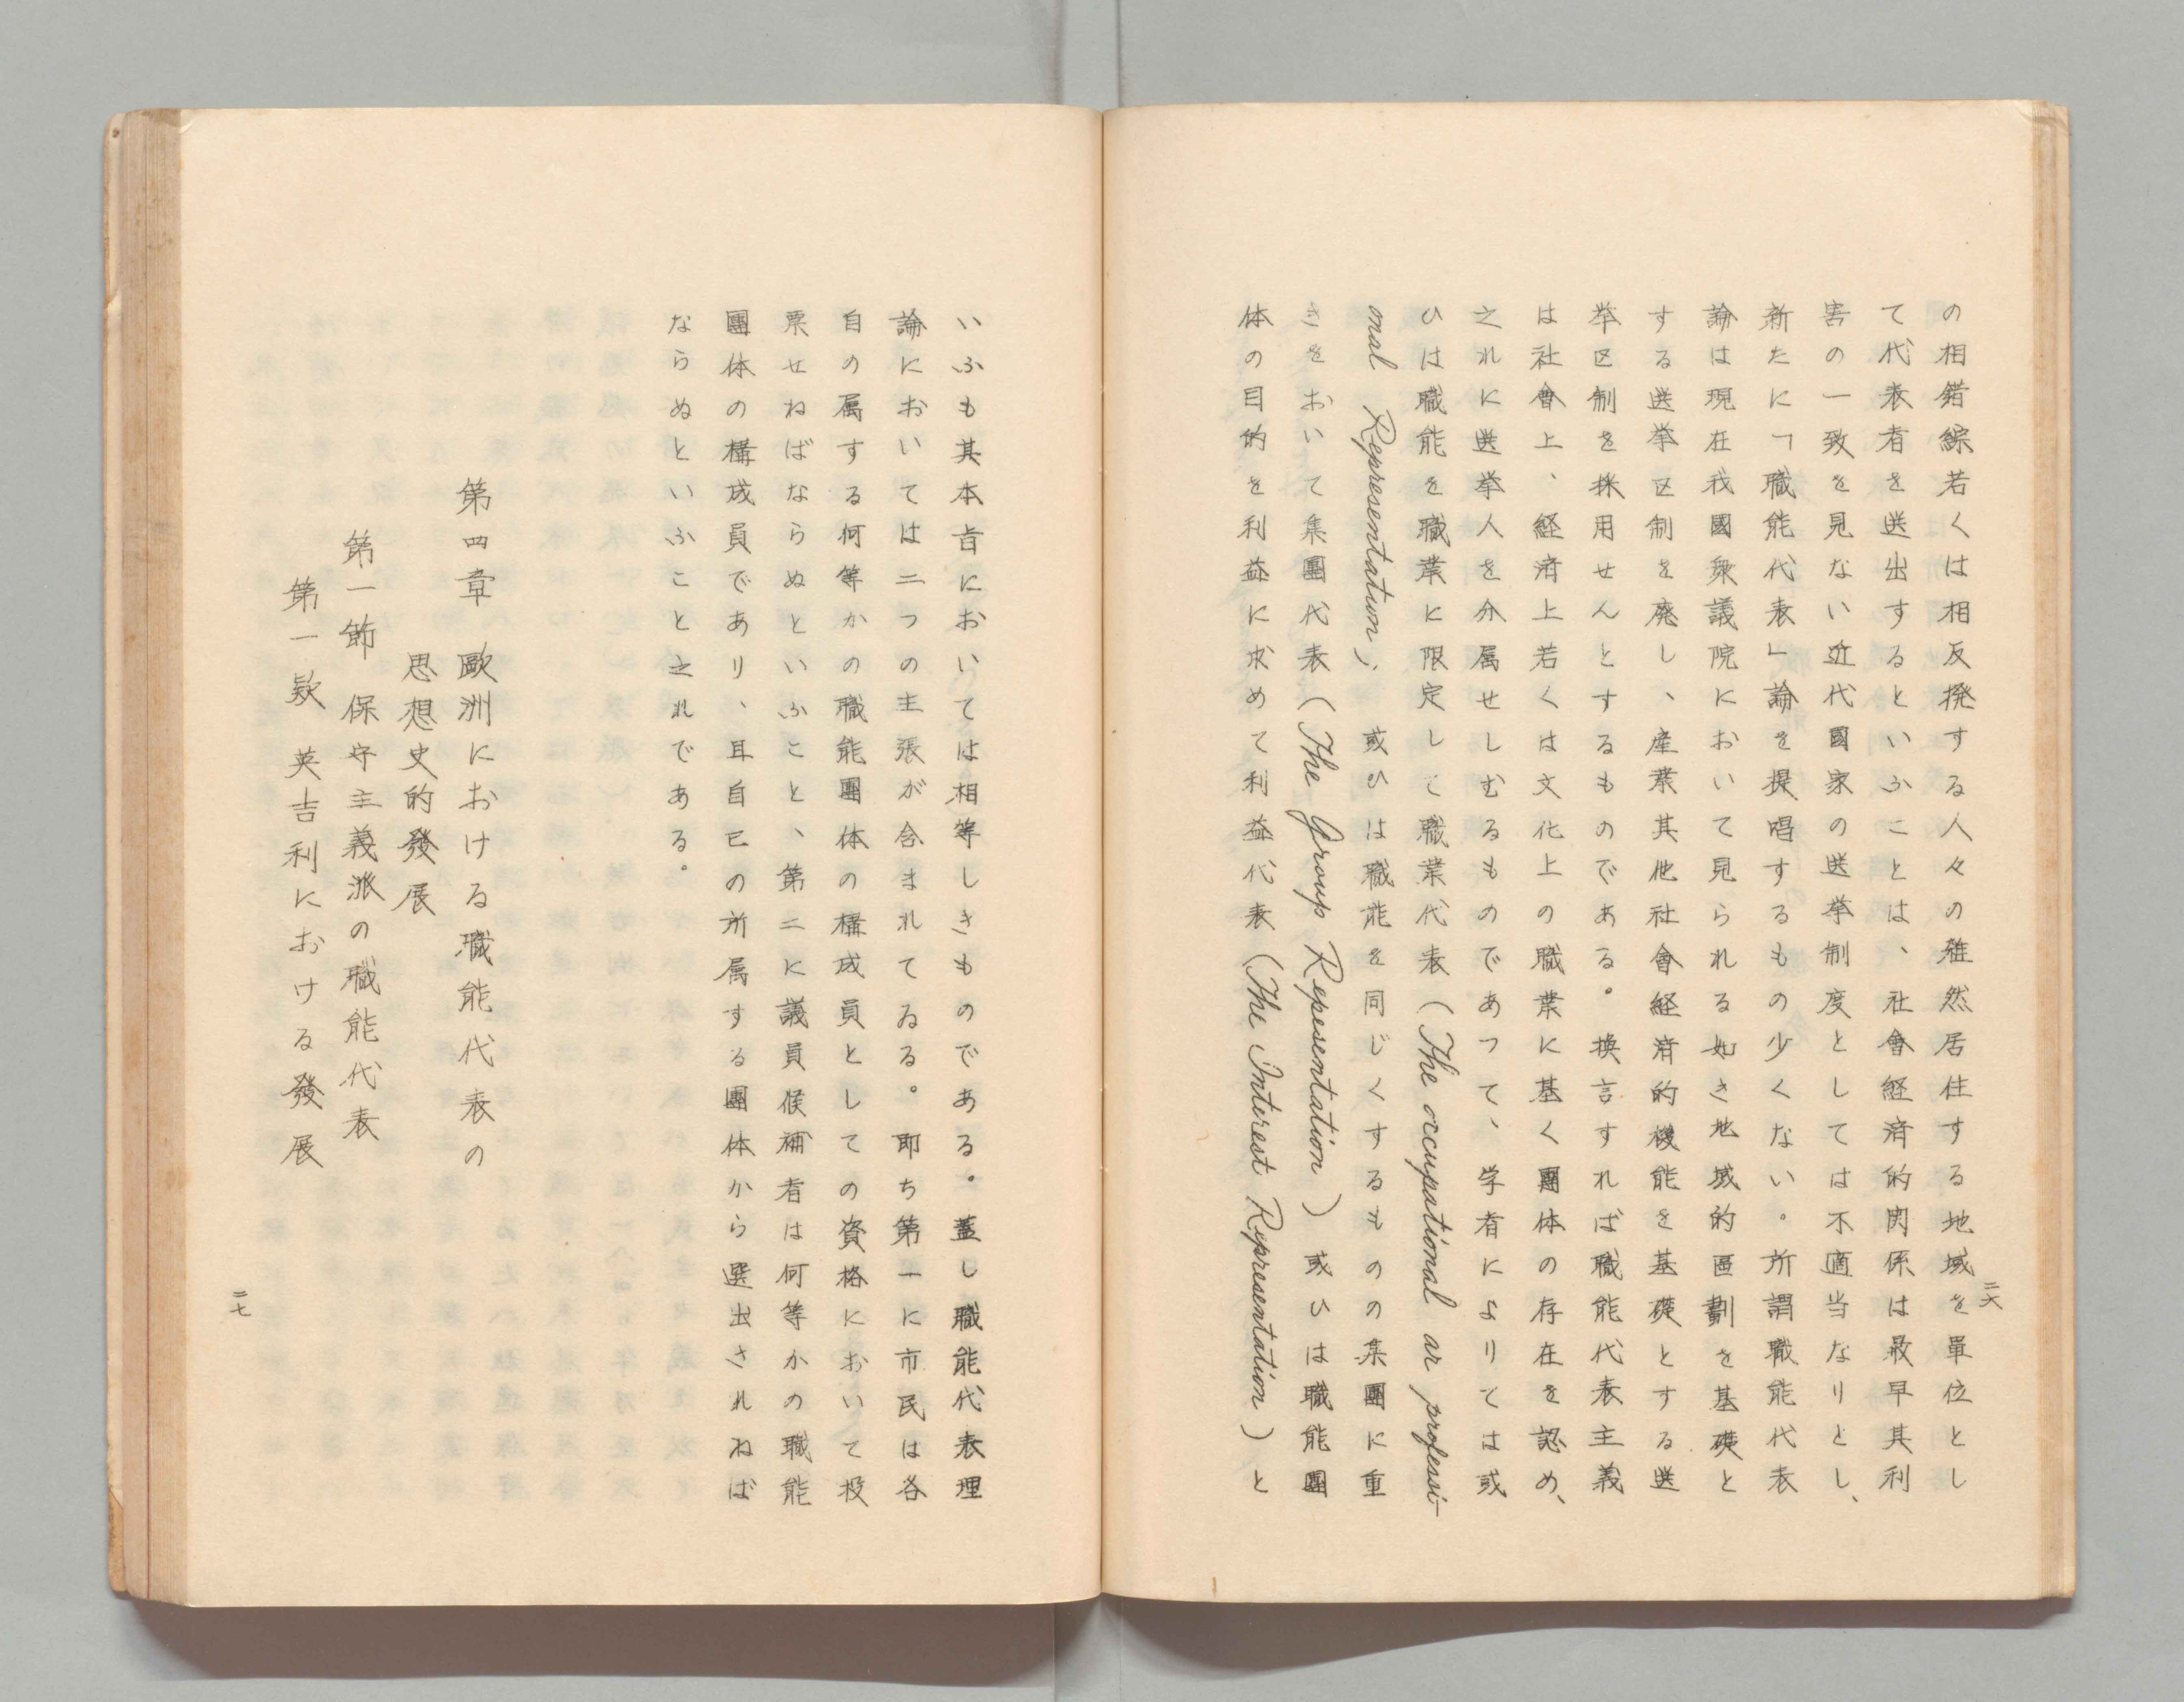 の相錯綜若くは相反撥する人々の雑然居住する地域を單位とし
て代表者を送出するといふことは、社會経済的関係は最早其利
害の一致を見ない近代國家の送挙制度としては不適当なりとし、
新たに「職能代表」論を提唱するもの少くない。所謂職能代表
論は現在我國衆議院において見られる如き地域的區劃を基礎と
する送挙区制を廃し、産業其他社會経済的機能を基礎とする送
挙区制を採用せんとするものである。換言すれば職能代表主義
は社會上、経済上若くは文化上の職業に基く團体の存在を認め、
之れに送挙人を分属せしむるものであつて、学者によりては或
ひは職能を職業に限定して職業代表(The occupational ar professi-
onal Representation)、或ひは職能を同じくするものの集團に重
きをおいて集團代表(The Group Representation)或ひは職能團
体の目的を利益に求めて利益代表(The Interest Representation)と
二六
いふも其本旨においては相等しきものである。蓋し職能代表理
論においては二つの主張が含まれてゐる。即ち第一に市民は各
自の属する何等かの職能團体の構成員としての資格において投
票せねばならぬといふこと、第二に議員候補者は何等かの職能
團体の構成員であり、且自己の所属する團体から選出されねば
ならぬといふこと之れである。
第四章 歐洲における職能代表の
思想史的發展
第一節 保守主義派の職能代表
第一款 英吉利における發展
二七